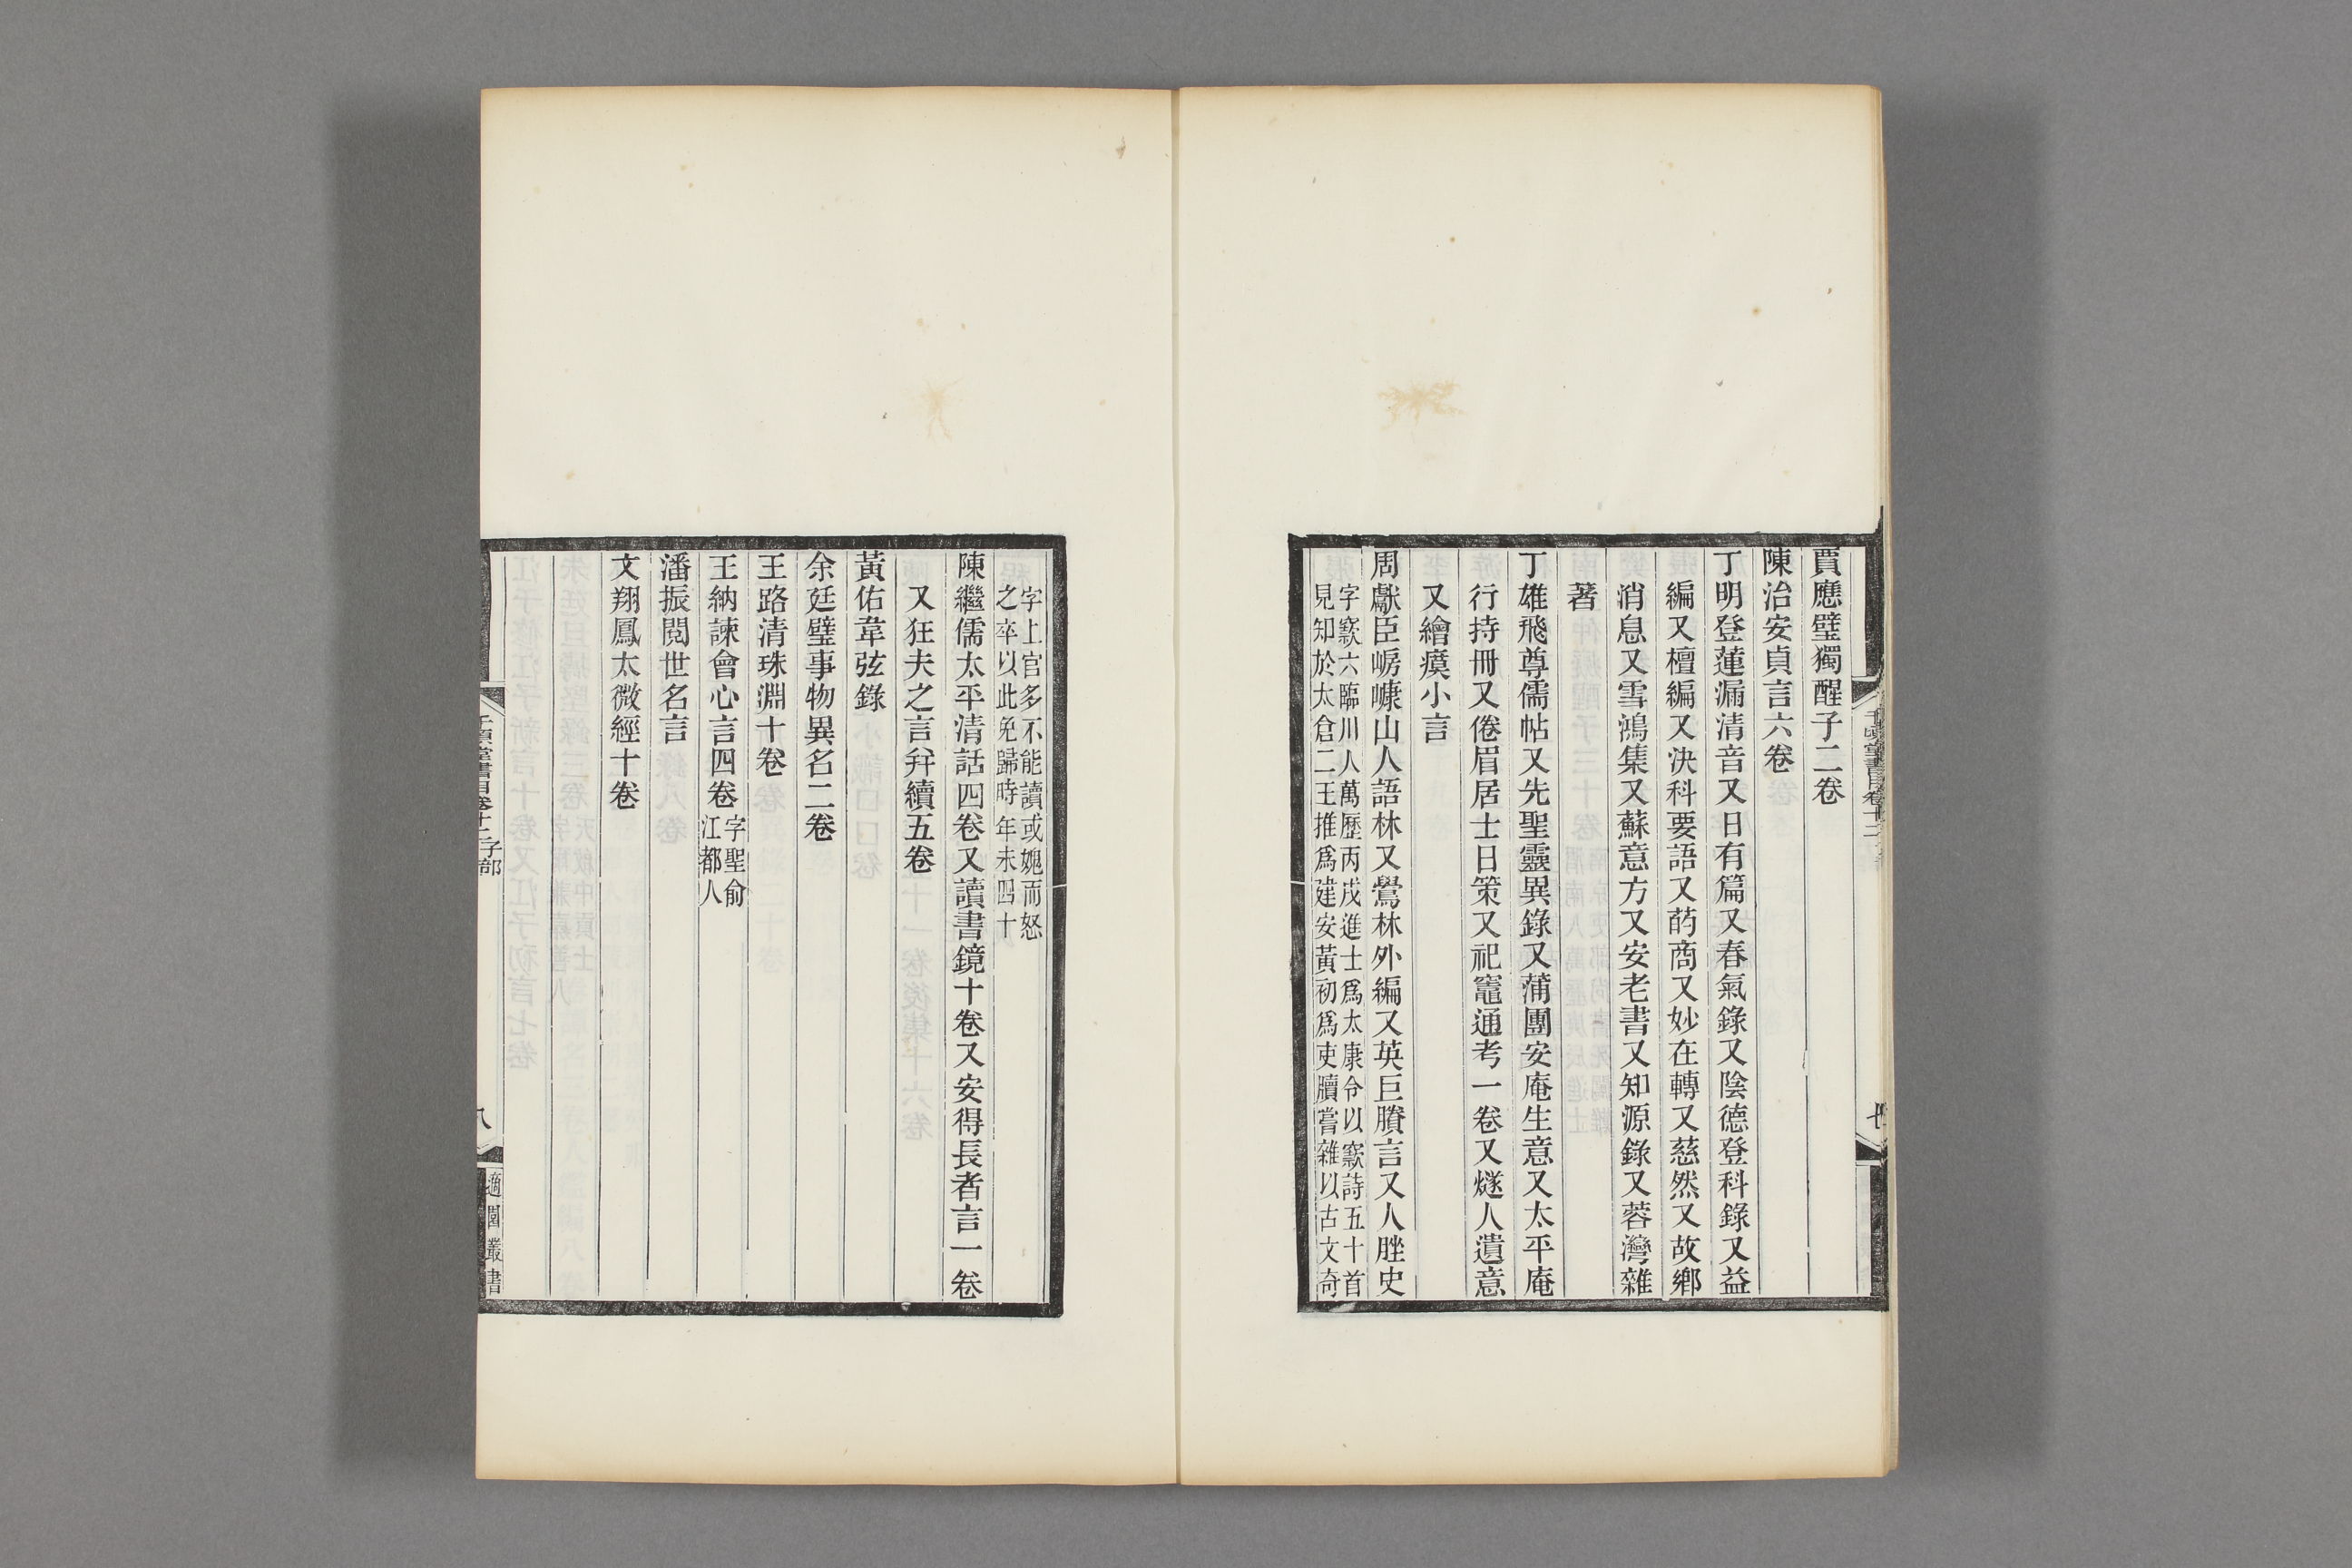 賈應璧獨醒子二卷
陳治安貞言六卷
丁明登蓮漏清音又日有篇又春氣錄又陰德登科錄又益
編又檀編又決科要語又菂商又妙在轉又慈然又故鄉
消息又雪鴻集又蘇意方又安老書又知源錄又蓉灣雜
著
丁雄飛尊儒帖又先聖靈異錄又蒲團安庵生意又太平庵
行持冊又倦眉居士日策又祀竈通考一卷又燧人遺意
又繪瘼小言
周獻臣㟳嵻山人語林又鷽林外編又英巨賸言又人脞史
字窾六臨川人萬歷丙戌進士爲太康令以窾詩五十首
見知於太倉二王推爲建安黃初爲吏牘嘗雜以古文奇
字上官多不能讀或媿而怒
之卒以此免歸時年未四十
陳繼儒太平清話四卷又讀書鏡十卷又安得長者言一卷
又狂夫之言幷續五卷
黃佑韋弦錄
余廷璧事物異名二卷
王路清珠淵十卷
王納諫會心言四卷 字聖俞
江都人
潘振閱世名言
文翔鳳太微經十卷
千頃堂書目卷十二 子部
八
適園叢書